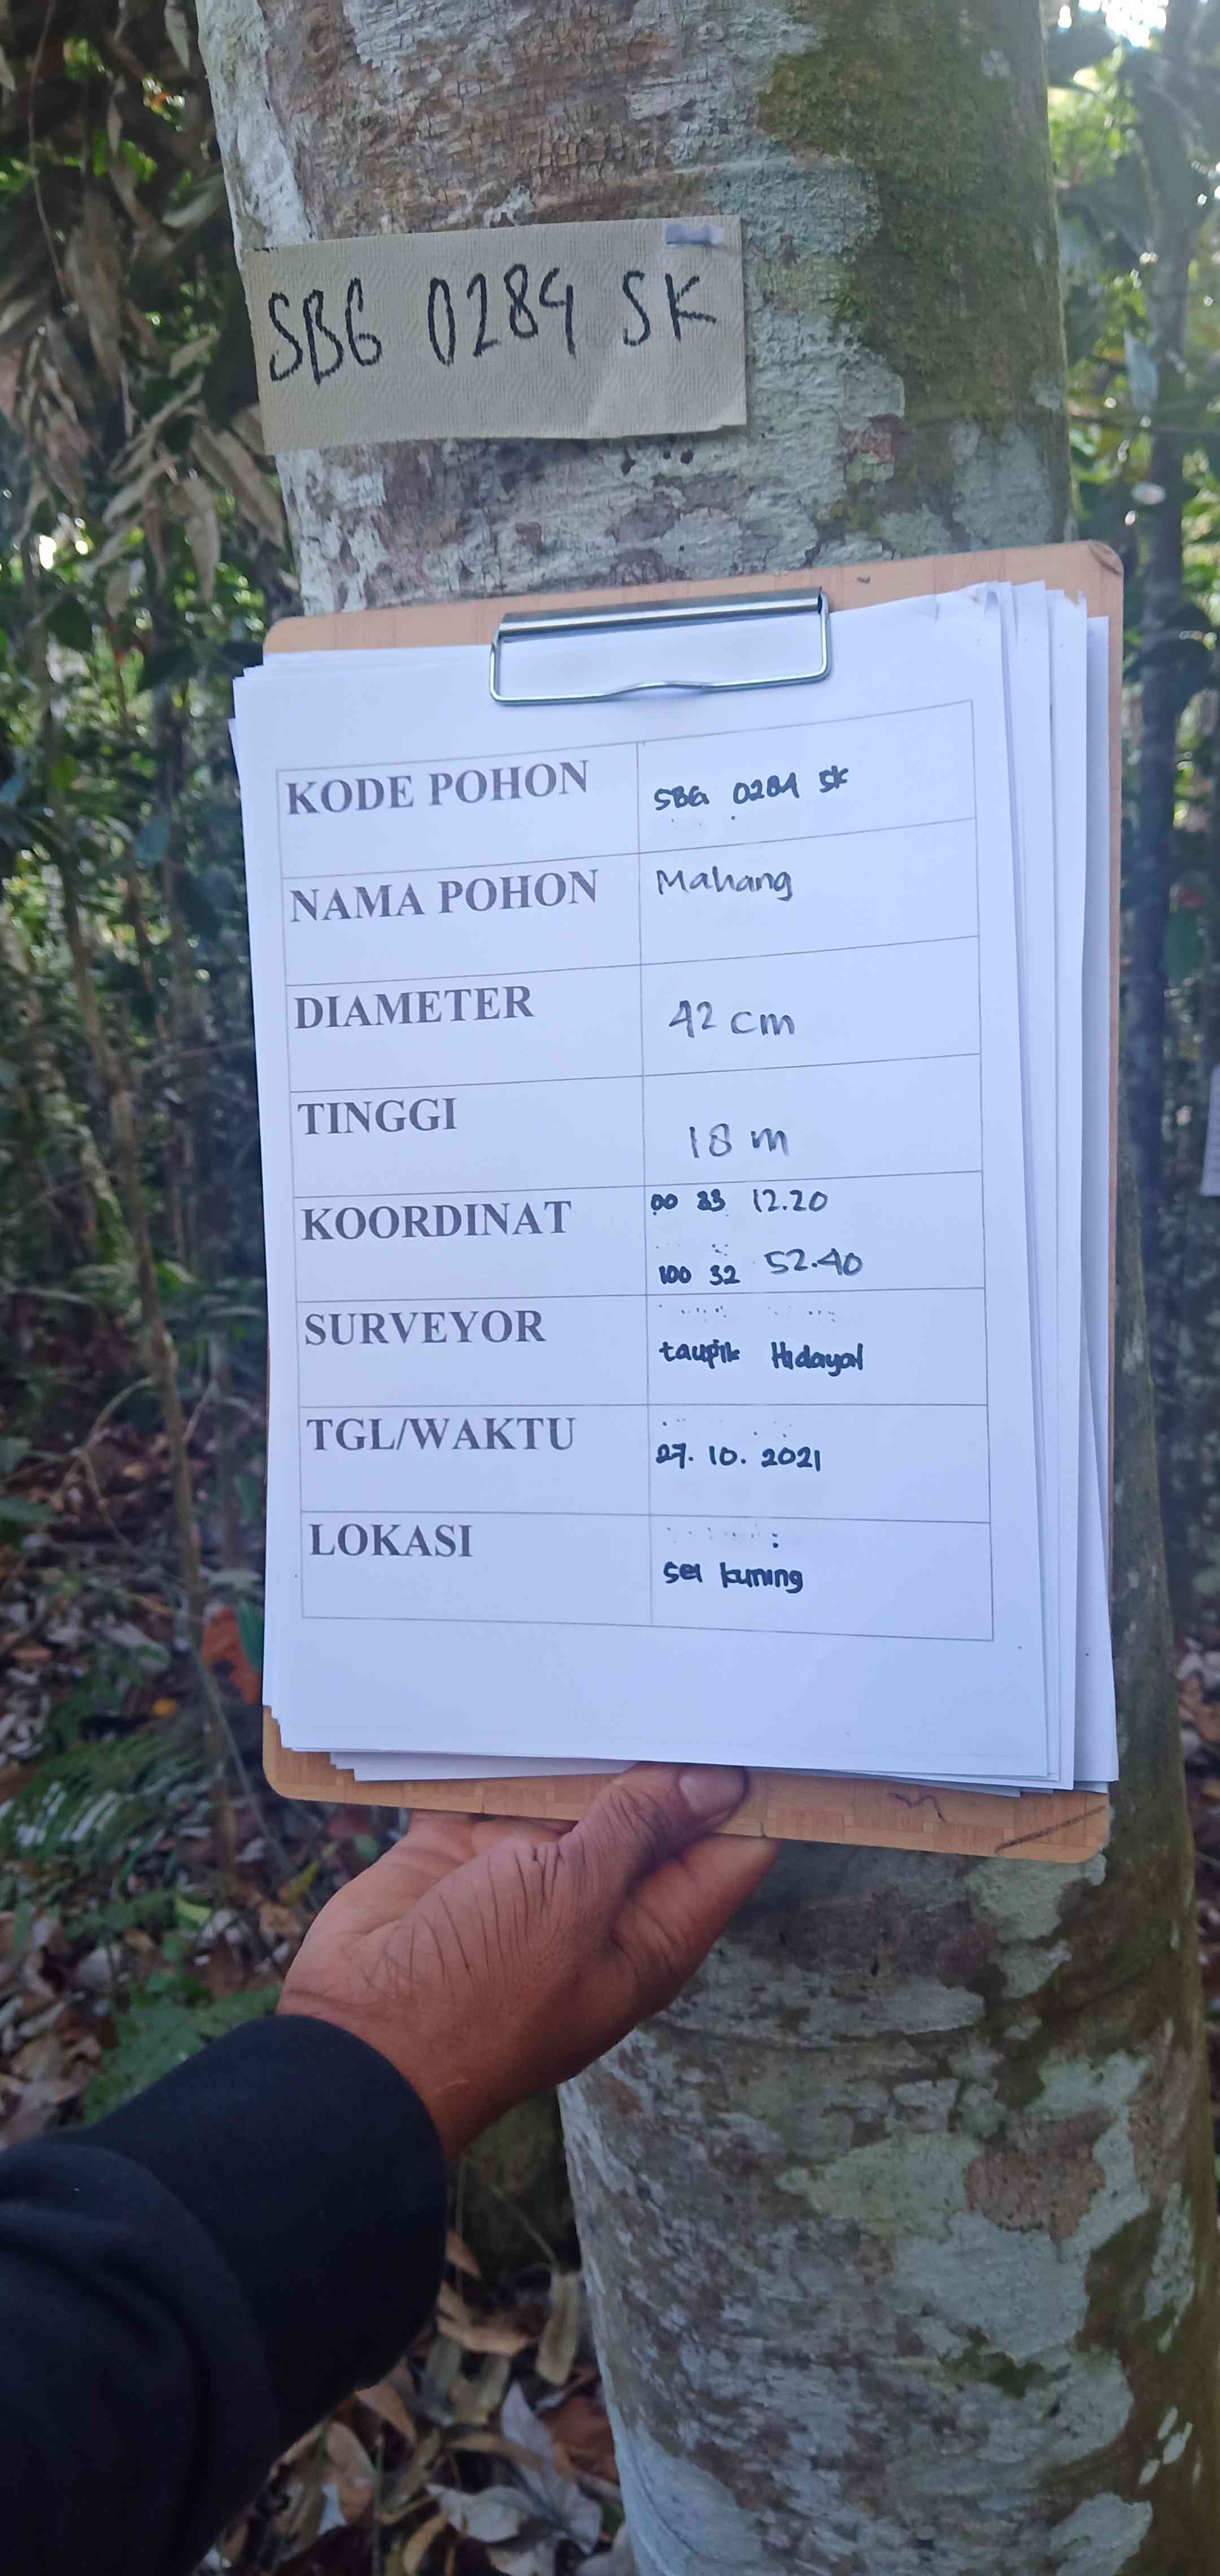 SBG 0284 SK
KODE POHON SBG 0284 SK
NAMA POHON Mahang
DIAMETER 42 cm
TINGGI 18 m
KOORDINAT 00 33 12.20
100 32 52.40
SURVEYOR taupik Hidayat
TGL/WAKTU 27. 10. 2021
LOKASI : sei kuning